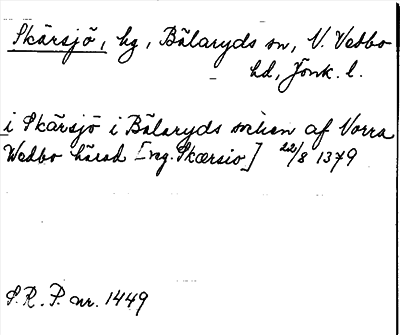 Skärsjö, hg, Bälaryds sn, N. Vedbo
hd, Jönk. l.
i Skärsjö i Bälaryds sochen af Norra
Wedbo härad [reg. Skærsio] 22/8 1379
S.R.P. nr. 1449